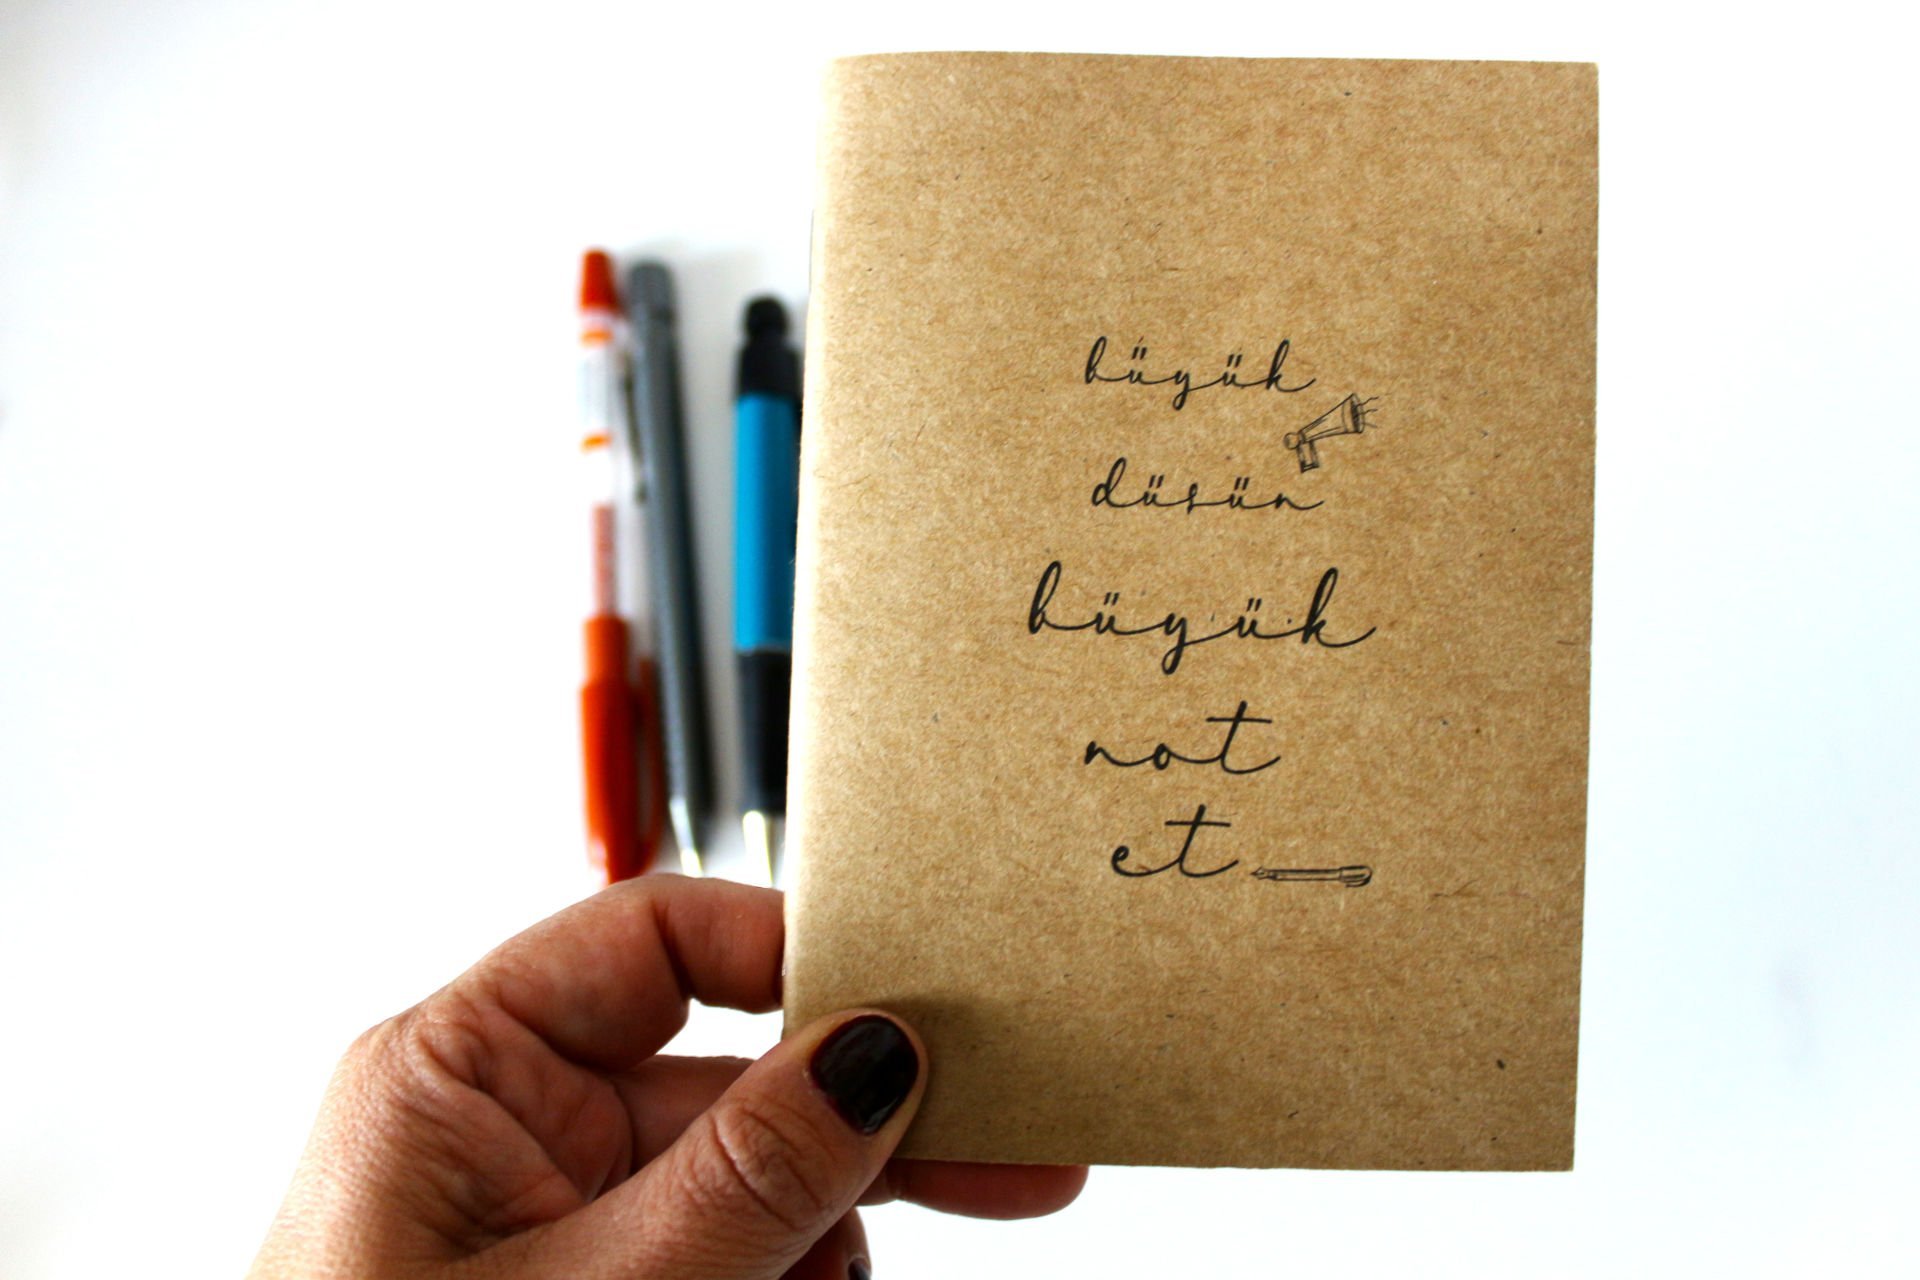 büyük
düsün
büyük
not
et